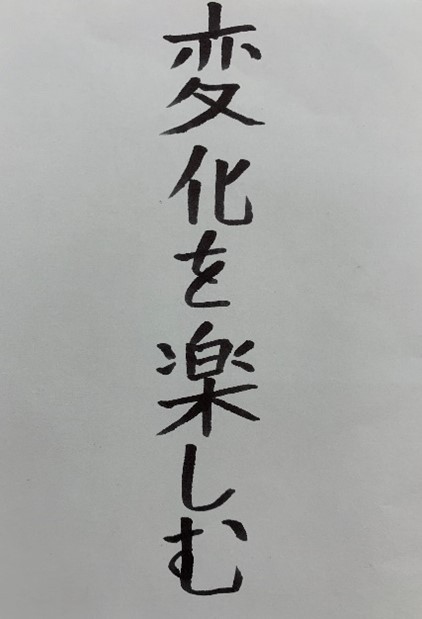 変化を楽しむ